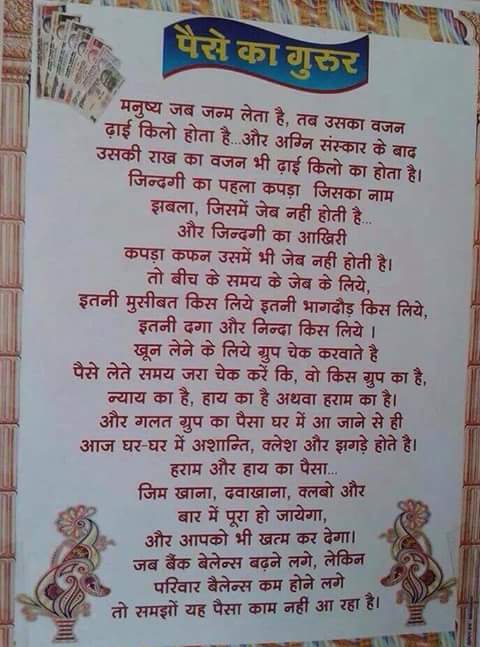 पैसे का गुरुर
मनुष्य जब जन्म लेता है, तब उसका वजन
ढ़ाई किलो होता है...और अग्नि संस्कार के बाद
उसकी राख का वजन भी ढ़ाई किलो का होता है।
जिन्दगी का पहला कपड़ा जिसका नाम
झबला, जिसमें जेब नही होती है...
और जिन्दगी का आखिरी
कपड़ा कफन उसमें भी जेब नही होती है।
तो बीच के समय के जेब के लिये,
इतनी मुसीबत किस लिये इतनी भागदौड़ किस लिये,
इतनी दगा और निन्दा किस लिये ।
खून लेने के लिये ग्रुप चेक करवाते है
पैसे लेते समय जरा चेक करें कि, वो किस ग्रुप का है,
न्याय का है, हाय का है अथवा हराम का है।
और गलत ग्रुप का पैसा घर में आ जाने से ही
आज घर-घर में अशान्ति, क्लेश और झगड़े होते है।
हराम और हाय का पैसा...
जिम खाना, दवाखाना, क्लबो और
बार में पूरा हो जायेगा,
और आपको भी खत्म कर देगा।
जब बैंक बेलेन्स बढ़ने लगे, लेकिन
परिवार बैलेन्स कम होने लगे
तो समझों यह पैसा काम नही आ रहा है।